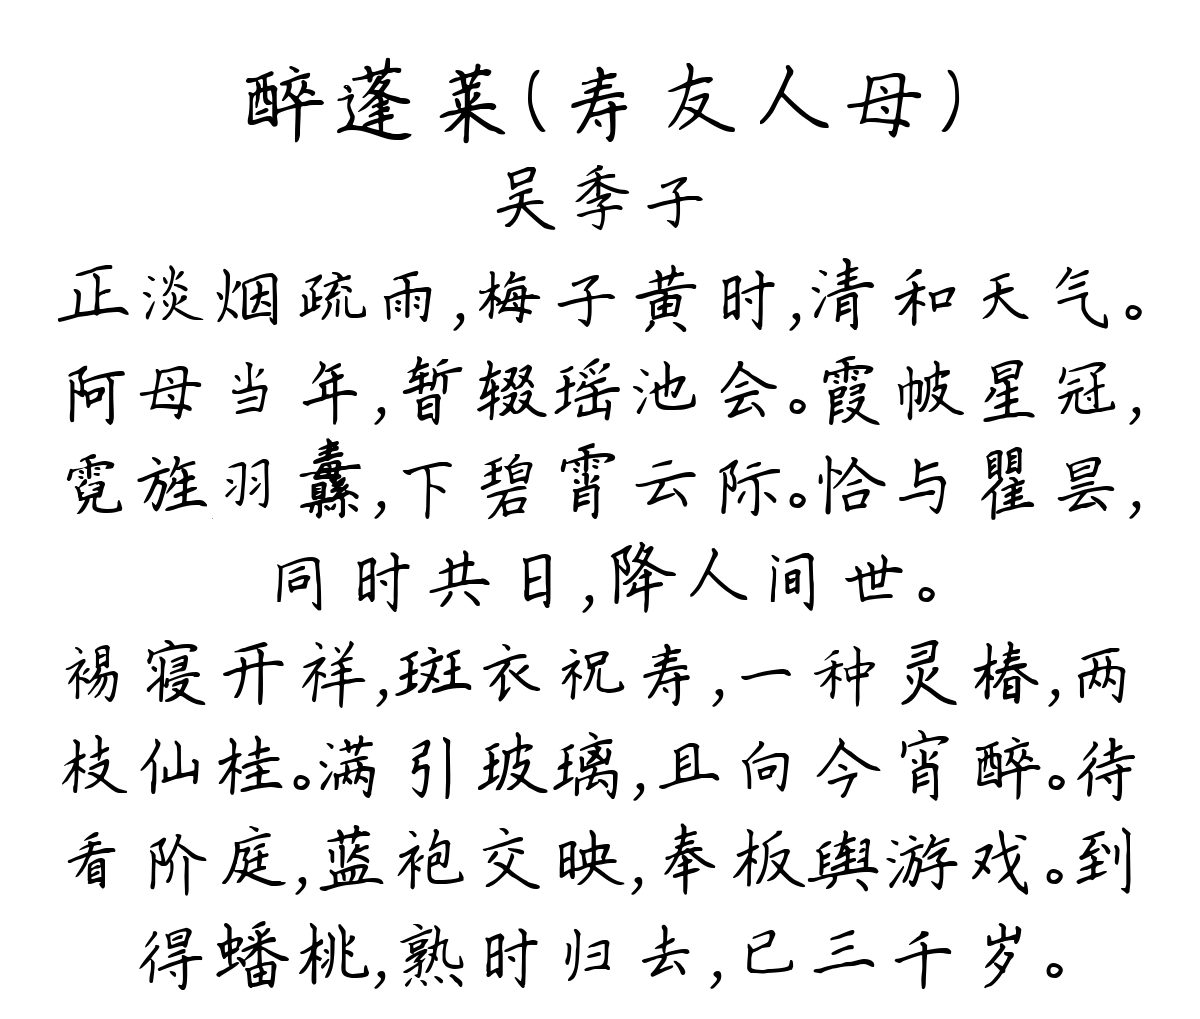 醉蓬莱(寿友人母)
吴季子
正淡烟疏雨,梅子黄时,清和天气。
阿母当年,暂辍瑶池会。霞帔星冠,
霓旌羽纛,下碧霄云际。恰与瞿昙,
同时共日,降人间世。
裼寝开祥,斑衣祝寿,一种灵椿,两
枝仙桂。满引玻璃,且向今宵醉。待
看阶庭,蓝袍交映,奉板舆游戏。到
得蟠桃,熟时归去,已三千岁。